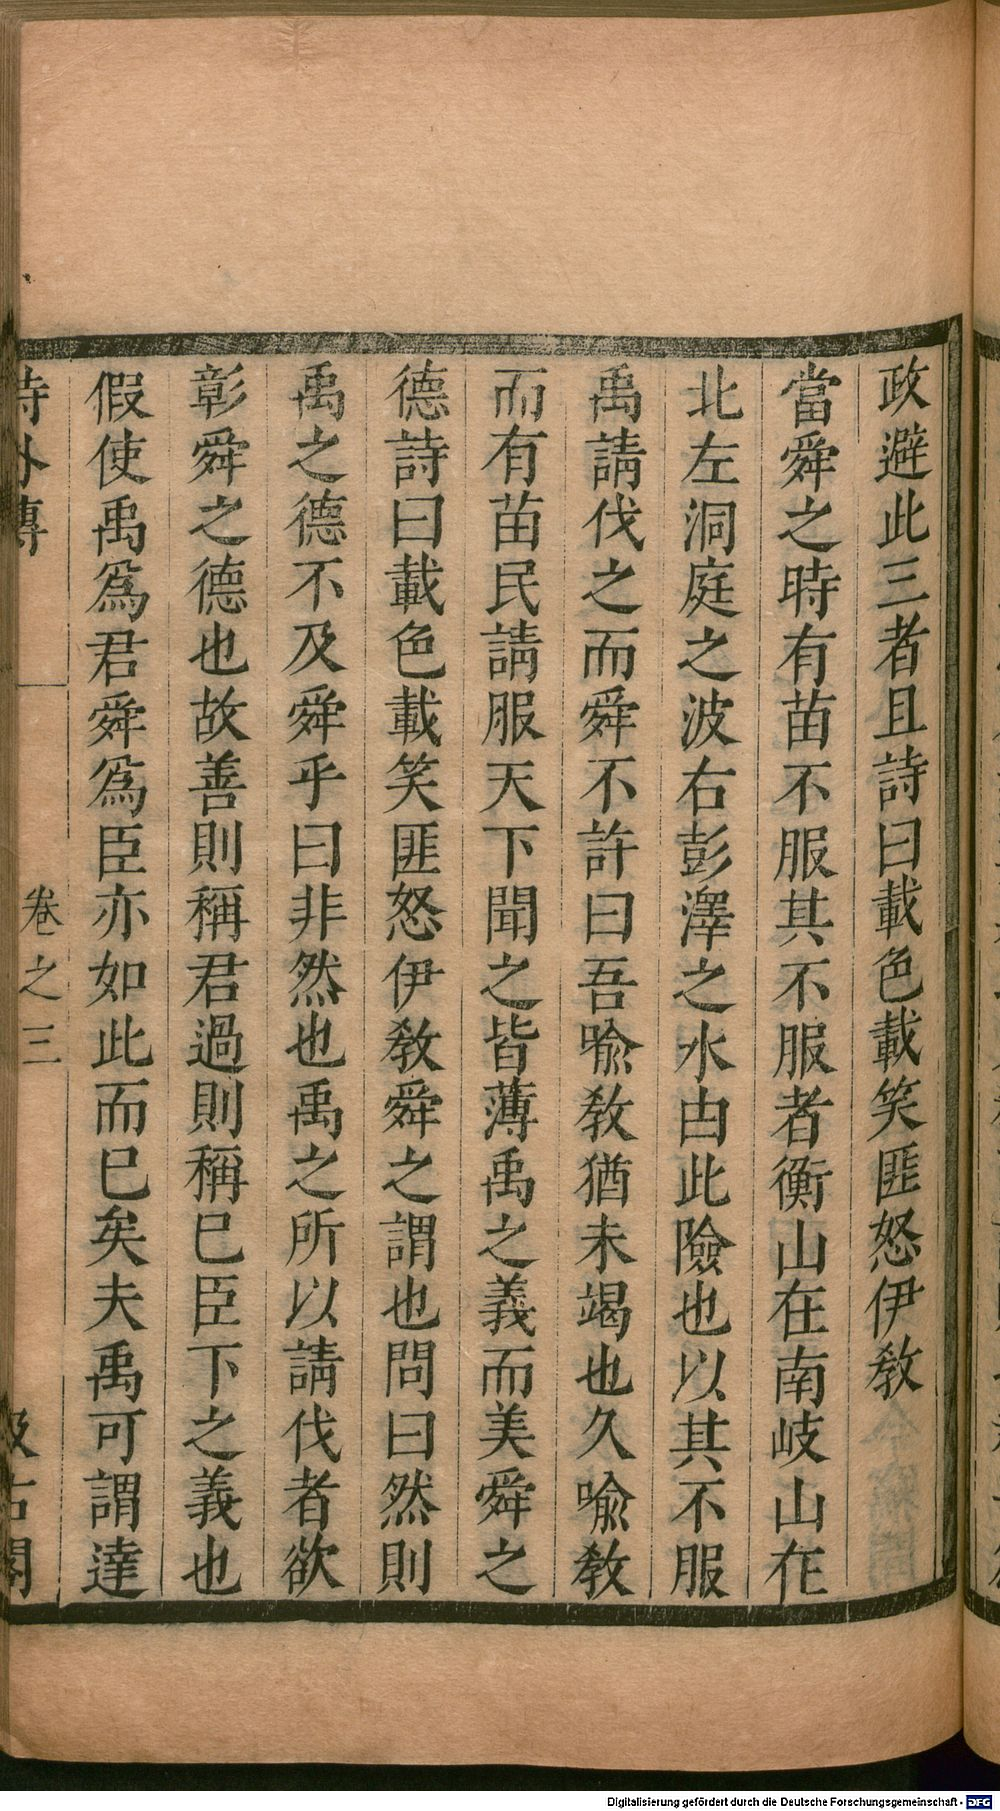 政避此三者且詩曰載色載笑匪怒伊教
當舜之時有苗不服其不服者衡山在南岐山在
北左洞庭之波右彭澤之水由此險也以其不服
禹請伐之而舜不許曰吾喻教猶未竭也久喻教
而有苗民請服天下聞之皆薄禹之義而美舜之
德詩曰載色載笑匪怒伊教舜之謂也問曰然則
禹之德不及舜乎曰非然也禹之所以請伐者欲
彰舜之德也故善則稱君過則稱已臣下之義也
假使禹爲君舜爲臣亦如此而已矣夫禹可謂達
詩外傳 卷之三 汲古閣
Digitalisierung gefördert durch die Deutsche Forschungsgemeinschaft - DFG